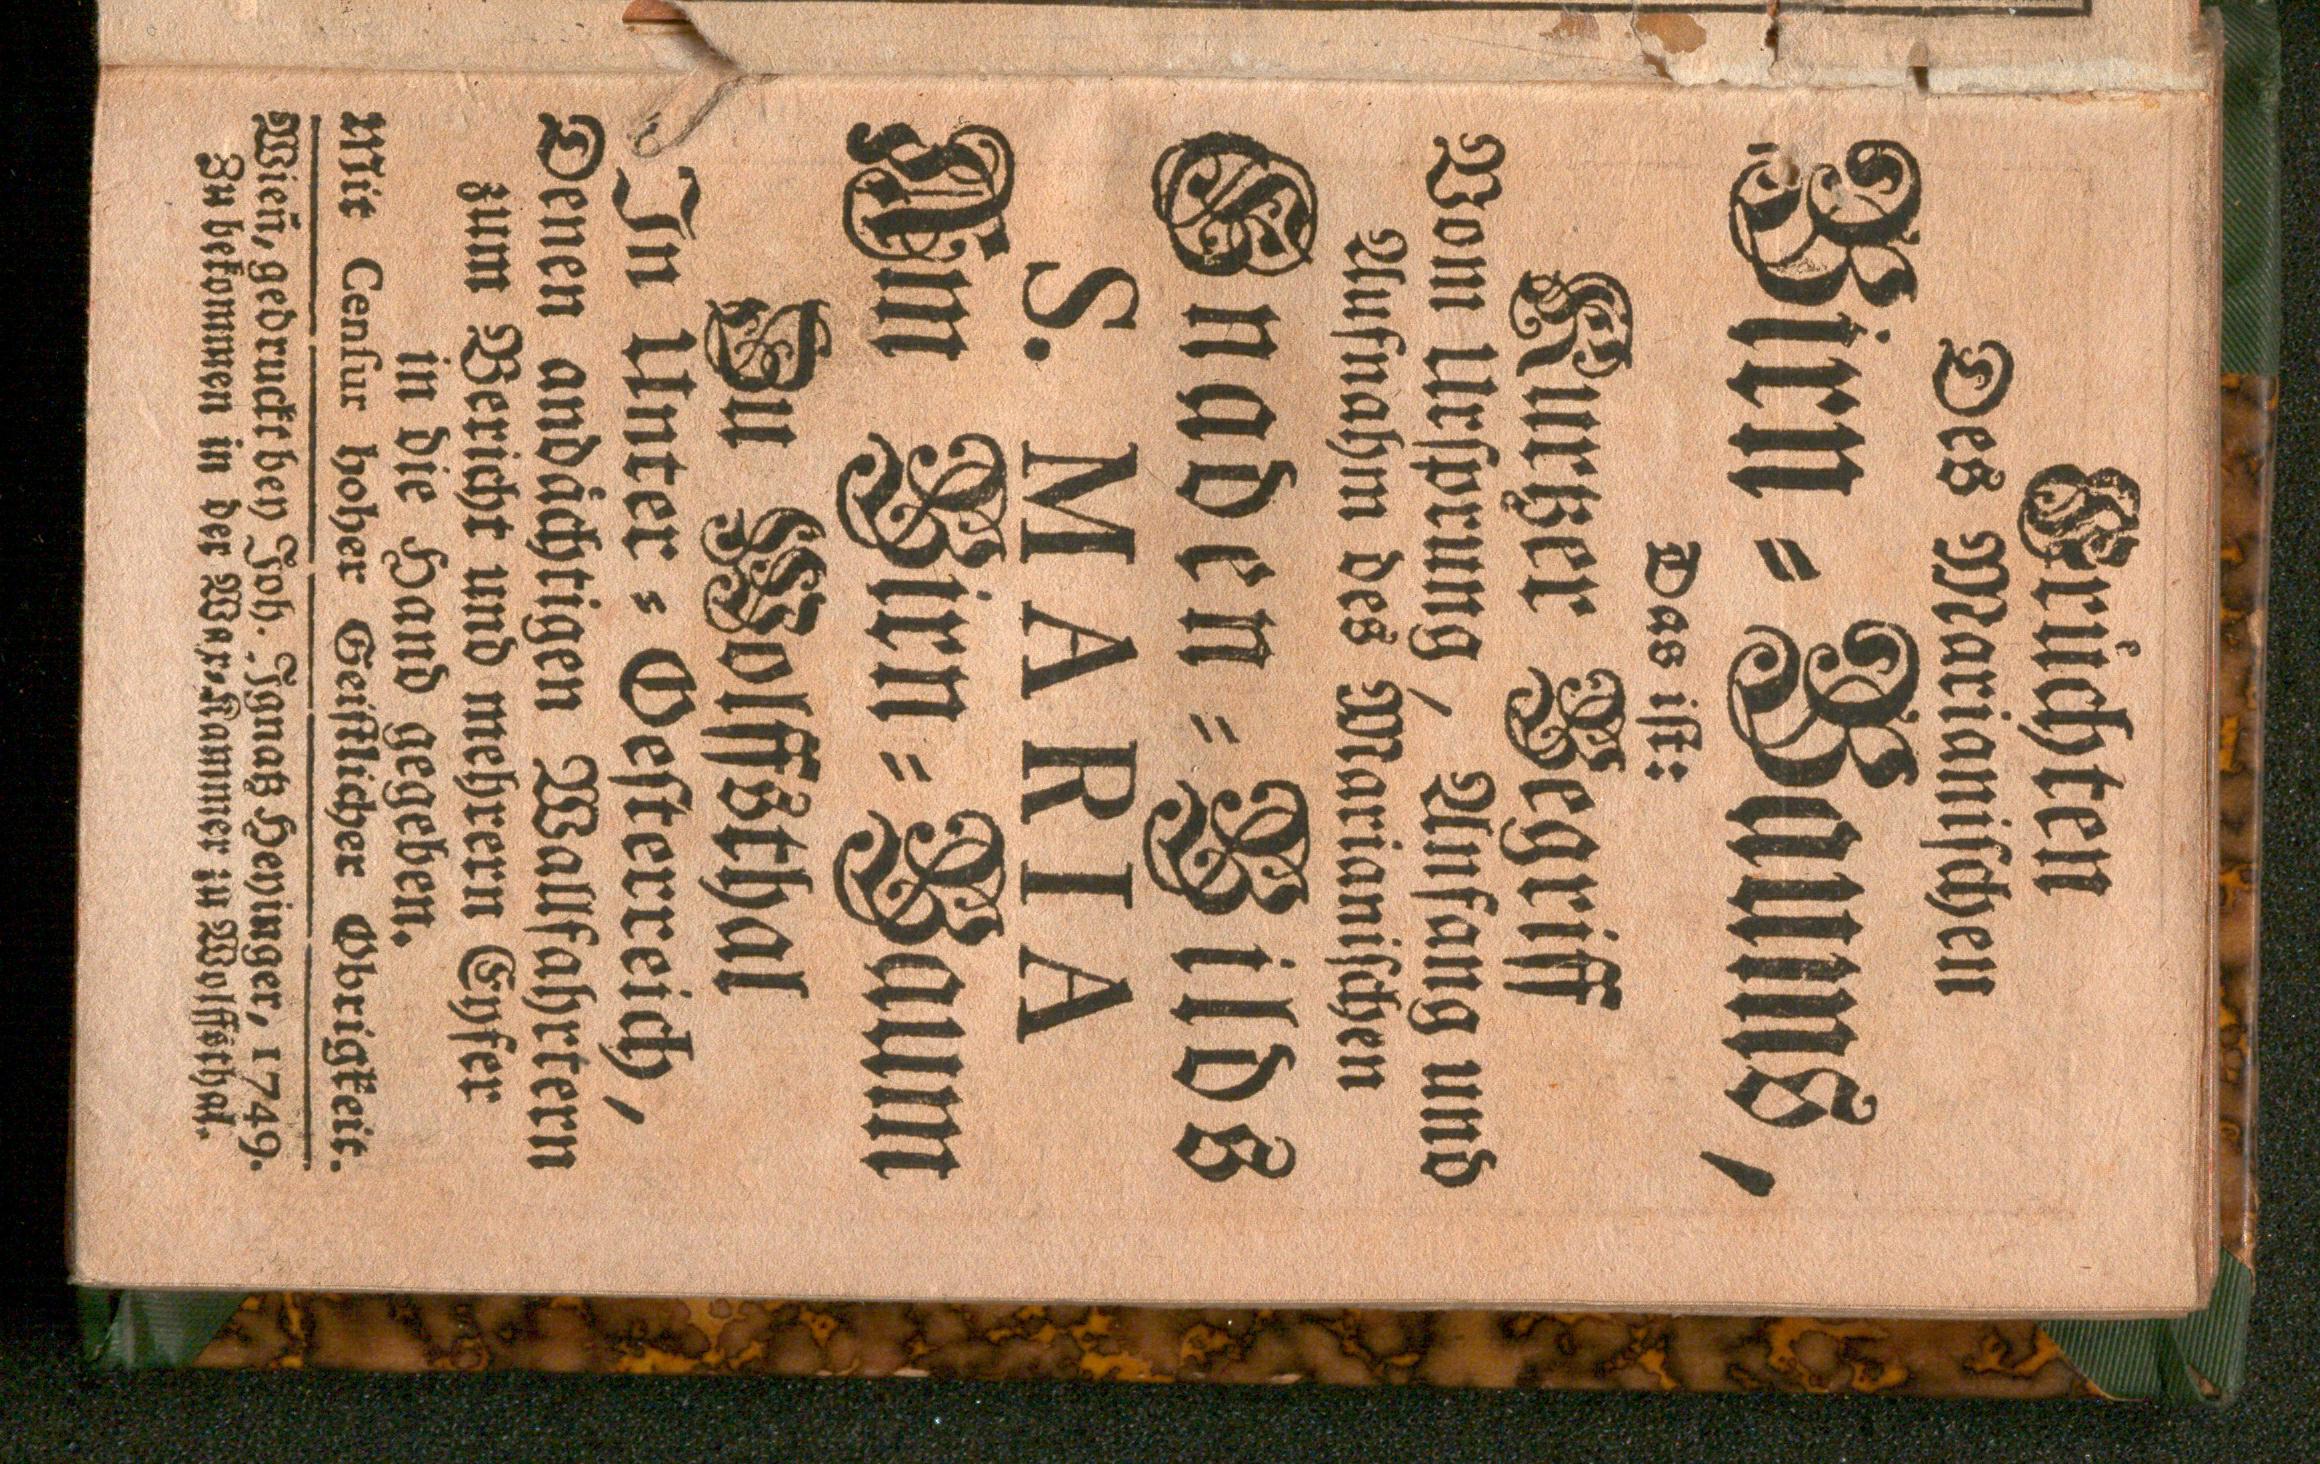 Früchten
Des Marianischen
Birn = Baums,
Das ist:
Kurtzer Begriff
Vom Ursprung / Anfang und
Aufnahm des Marianischen
Gnaden = Bilds
S. MARIA
Am Birn = Baum
Zu Wolffsthal
In Unter = Oesterreich,
Denen andächtigen Wallfahrtern
zum Bericht und mehrern Eyfer
in die Hand gegeben.
Mit Censur hoher Geistlicher Obrigkeit.
Wieñ, gedruckt bey Joh. Ignatz Heyinger, 1749.
Zu bekommen in der Wax-Kammer zu Wolffsthal.